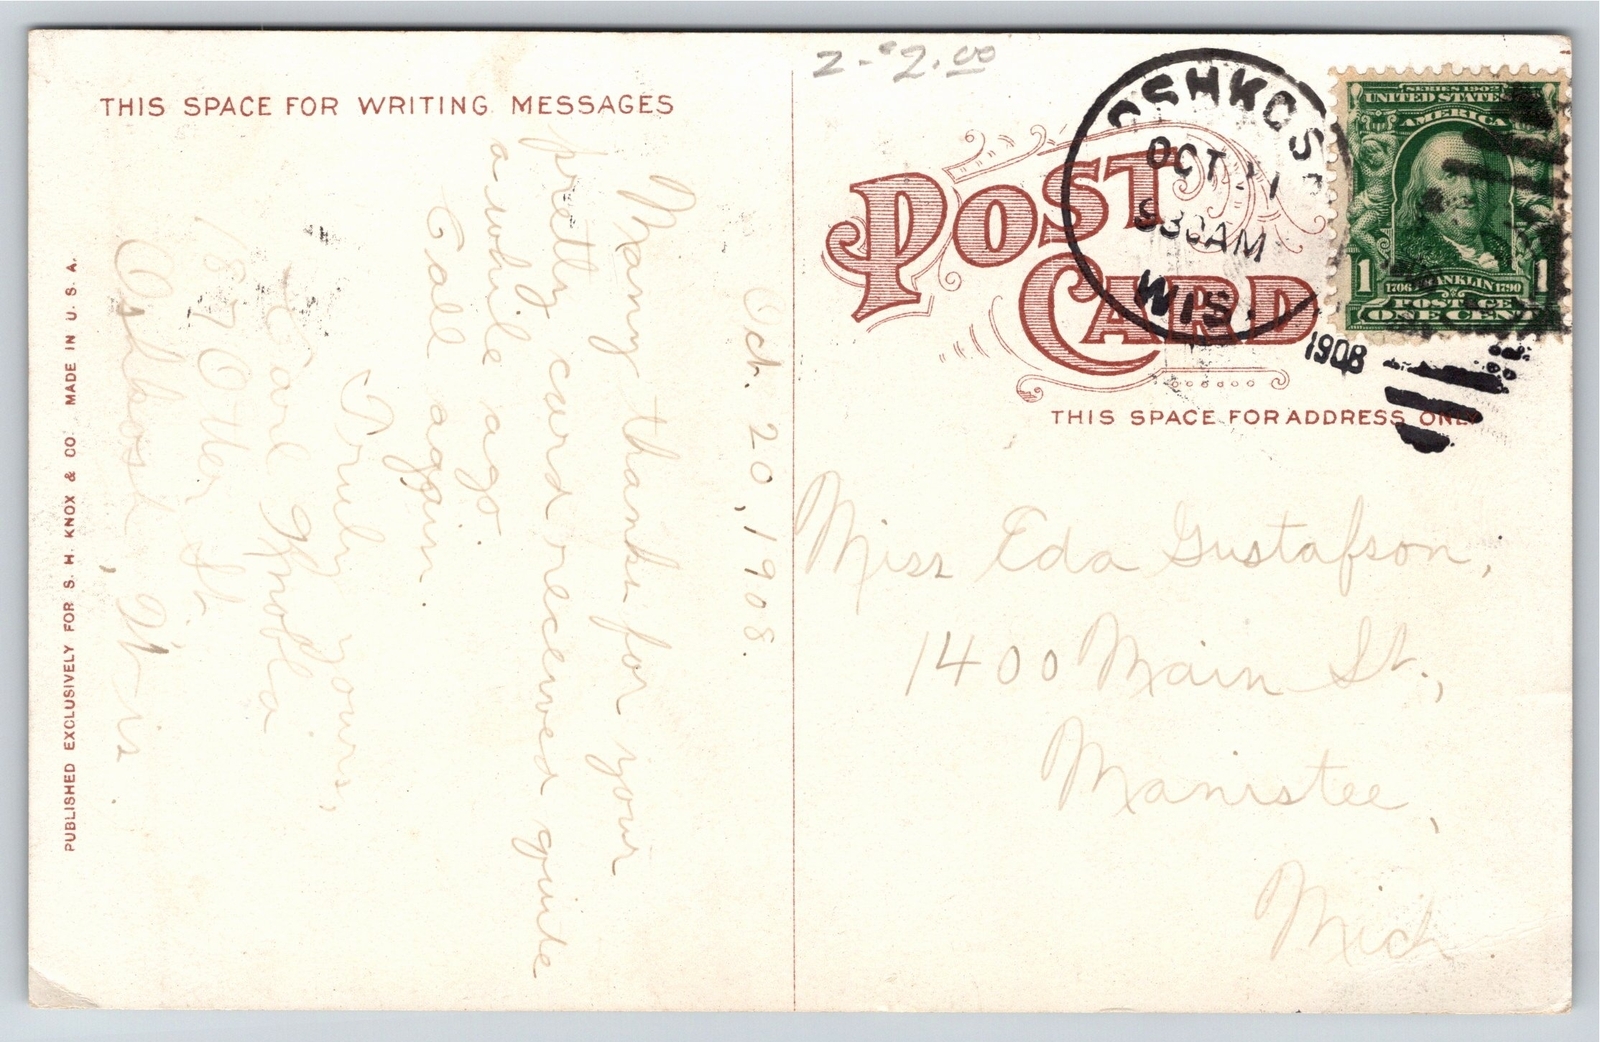 2-$2.00
THIS SPACE FOR WRITING MESSAGES
Oct. 20, 1908.
Many thanks for your
pretty card received quite
a while ago.
Call again.
Truly yours,
Carl
187 Otter St.
Oshkosh, Wis.
PUBLISHED EXCLUSIVELY FOR S. H. KNOX & CO. MADE IN U. S. A.
POST
CARD
THIS SPACE FOR ADDRESS ONLY
OSHKOSH
OCT
930AM
WIS.
1908
SERIES 1902
UNITED STATES
AMERICA
1706 FRANKLIN 1790
1 1
POSTAGE
ONE CENT
Miss Eda Gustafson,
1400 Main St.,
Manistee,
Mich